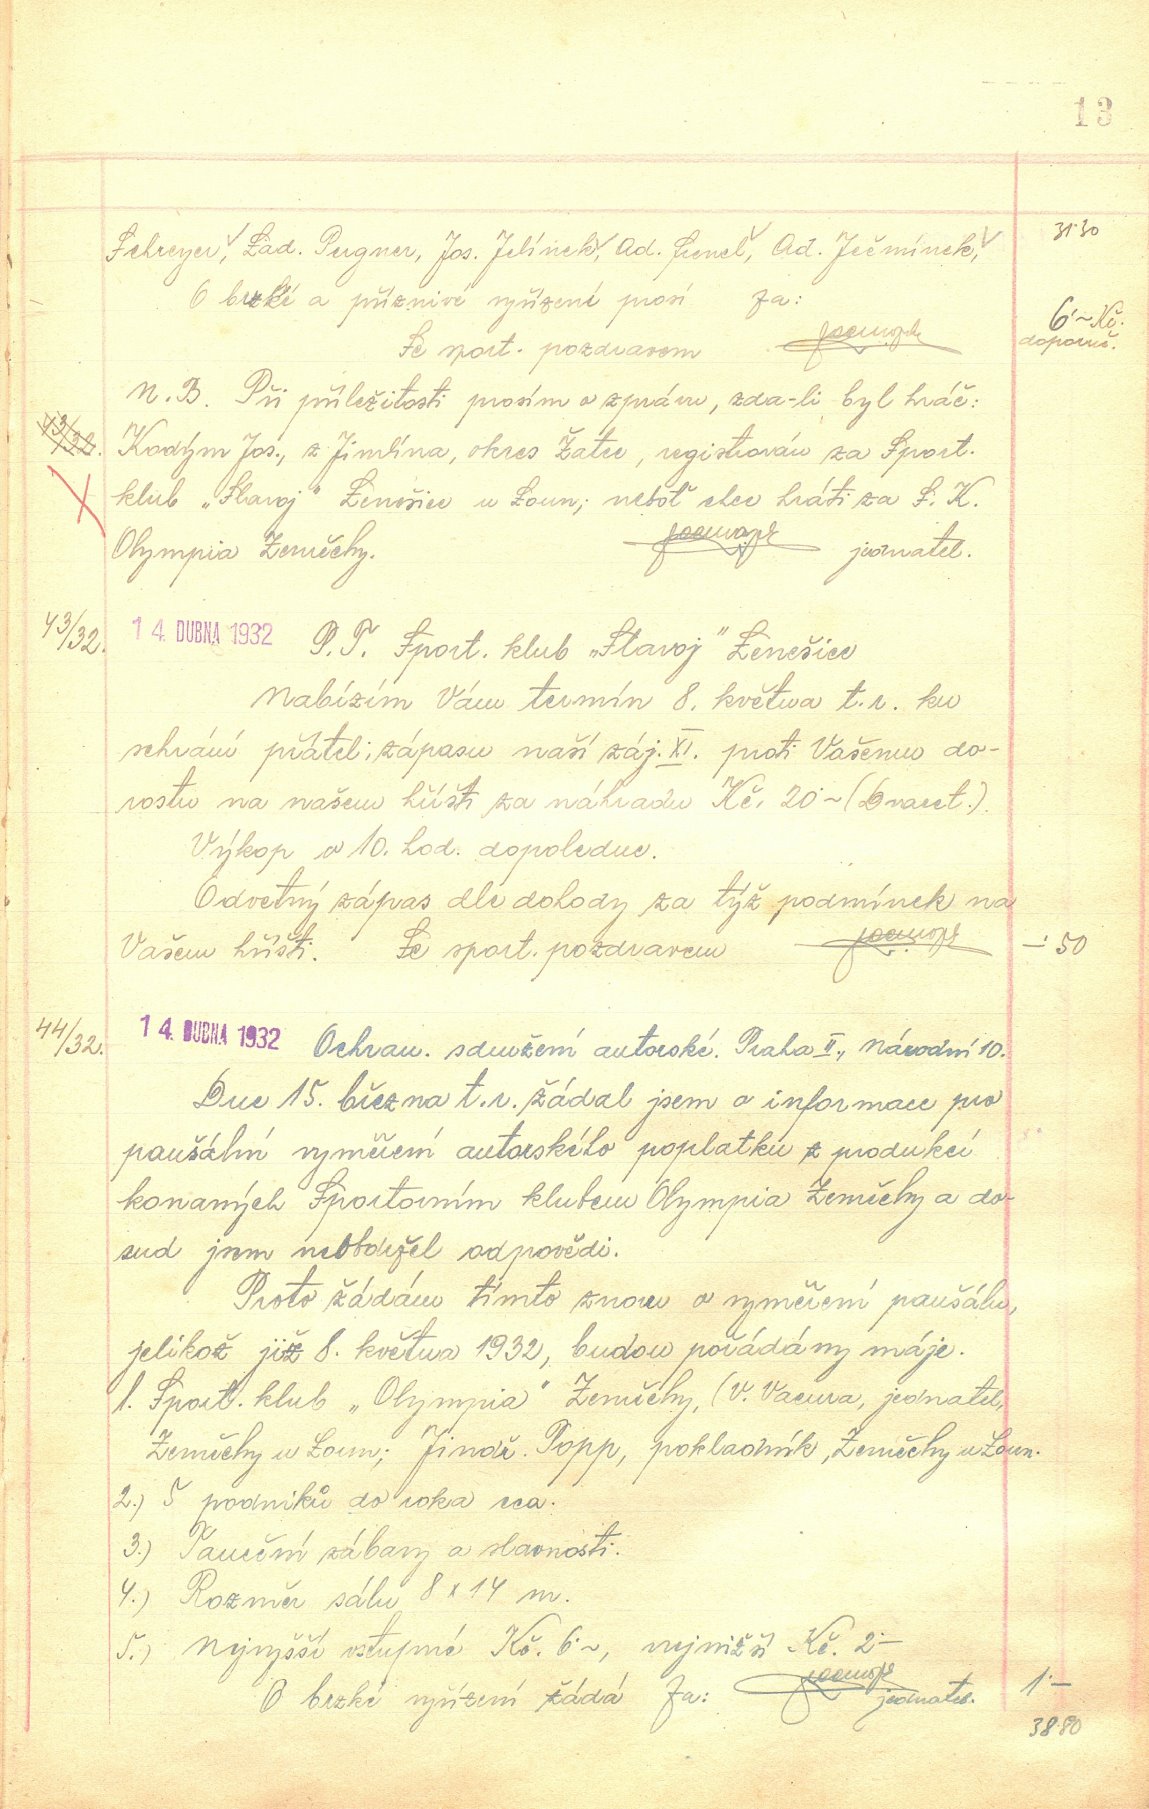 13
31·30
Schreyer, Lad. Pergner, Jos. Jelínek, Ad. Frenel, Ad. Ječmínek,
O brzké a příznivé vyřízení prosí za:
6·~ Kč.
doporuč.
Se sport. pozdravem
N. B. Při příležitosti prosím o zprávu, zda-li byl hráč:
43/32.
Kodým Jos., z Jimlína, okres Žatec, registrován za Sport.
klub „Slavoj" Lenešice u Loun; neboť chce hráti za S. K.
Olympia Zeměchy. jednatel.
43/32. 14. DUBNA 1932 P. T. Sport. klub „Slavoj" Lenešice
Nabízím Vám termín 8. května t. r. ku
sehrání přátel. zápasu naší záj. XI. proti Vašemu do-
rostu na našem hřišti za náhradu Kč. 20·~ (Dvacet.).
Výkop v 10. hod. dopoledne.
Odvetný zápas dle dohody za týž podmínek na
Vašem hřišti. Se sport. pozdravem
—·50
44/32. 14. DUBNA 1932 Ochran. sdružení autorské. Praha II., Národní 10.
Dne 15. března t. r. žádal jsem o informace pro
paušální vyměření autorského poplatku z produkcí
konaných Sportovním klubem Olympia Zeměchy a do-
sud jsem neobdržel odpovědi.
Proto žádám tímto znovu o vyměření paušálu,
jelikož již 8. května 1932, budou pořádány máje.
1. Sport. klub „Olympia" Zeměchy, (V. Vacura, jednatel,
Zeměchy u Loun; Jindř. Popp, pokladník, Zeměchy u Loun.
2.) 5 podniků do roka cca.
3.) Taneční zábavy a slavnosti.
4.) Rozměr sálu 8 x 14 m.
5.) Nejvyšší vstupné Kč. 6·~, nejnižší Kč. 2·—
O brzké vyřízení žádá za: jednatel.
1·—
38·80